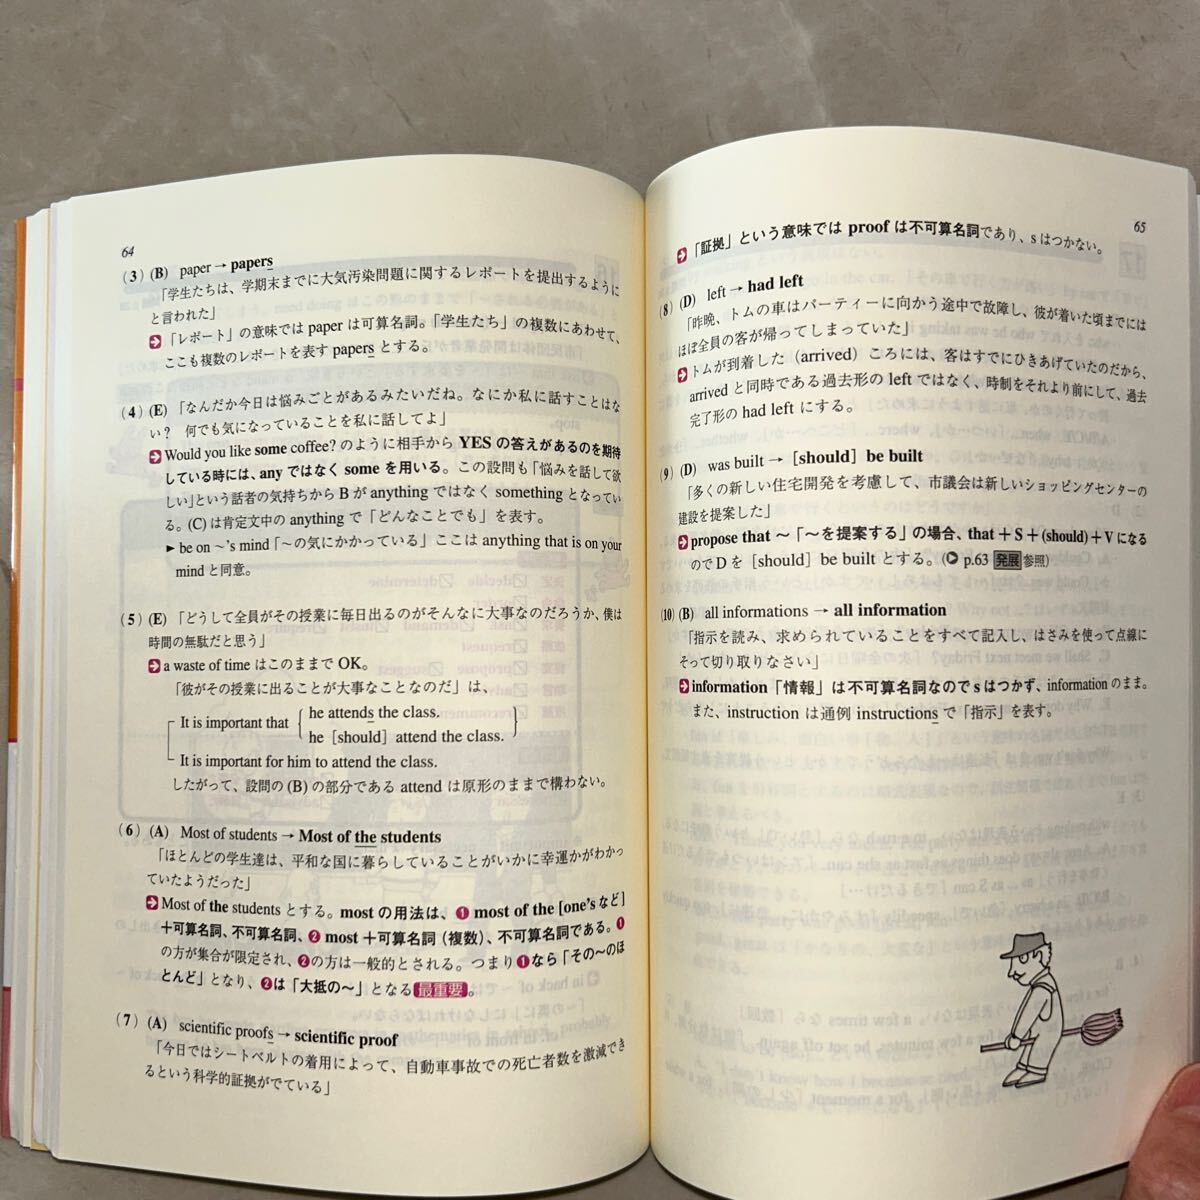 64
(3) (B) paper → papers
「学生たちは、学期末までに大気汚染問題に関するレポートを提出するように
と言われた」
「レポート」の意味では paper は可算名詞。「学生たち」の複数にあわせて、
ここも複数のレポートを表す papers とする。
(4) (E) 「なんだか今日は悩みごとがあるみたいだね。なにか私に話すことはな
い? 何でも気になっていることを私に話してよ」
Would you like some coffee? のように相手から YES の答えがあるのを期待
している時には、any ではなく some を用いる。この設問も「悩みを話して欲
しい」という話者の気持ちから B が anything ではなく something となってい
る。(C) は肯定文中の anything で「どんなことでも」を表す。
► be on ~'s mind「~の気にかかっている」ここは anything that is on your
mind と同意。
(5) (E) 「どうして全員がその授業に毎日出るのがそんなに大事なのだろうか、僕は
時間の無駄だと思う」
a waste of time はこのままで OK。
「彼がその授業に出ることが大事なことなのだ」は、
It is important that { he attends the class.
he [should] attend the class. }
It is important for him to attend the class.
したがって、設問の (B) の部分である attend は原形のままで構わない。
(6) (A) Most of students → Most of the students
「ほとんどの学生達は、平和な国に暮らしていることがいかに幸運かがわかっ
ていたようだった」
Most of the students とする。most の用法は、❶ most of the [one's など]
+可算名詞、不可算名詞、❷ most +可算名詞(複数)、不可算名詞である。❶
の方が集合が限定され、❷の方は一般的とされる。つまり❶なら「その~のほ
とんど」となり、❷は「大抵の~」となる 最重要。
(7) (A) scientific proofs → scientific proof
「今日ではシートベルトの着用によって、自動車事故での死亡者数を激減でき
るという科学的証拠がでている」
65
「証拠」という意味では proof は不可算名詞であり、s はつかない。
(8) (D) left → had left
「昨晩、トムの車はパーティーに向かう途中で故障し、彼が着いた頃までには
ほぼ全員の客が帰ってしまっていた」
トムが到着した (arrived) ころには、客はすでにひきあげていたのだから、
arrived と同時である過去形の left ではなく、時制をそれより前にして、過去
完了形の had left にする。
(9) (D) was built → [should] be built
「多くの新しい住宅開発を考慮して、市議会は新しいショッピングセンターの
建設を提案した」
propose that ~「~を提案する」の場合、that + S + (should) + V になる
ので D を [should] be built とする。(▶ p.63 発展 参照)
(10) (B) all informations → all information
「指示を読み、求められていることをすべて記入し、はさみを使って点線に
そって切り取りなさい」
information「情報」は不可算名詞なので s はつかず、information のまま。
また、instruction は通例 instructions で「指示」を表す。